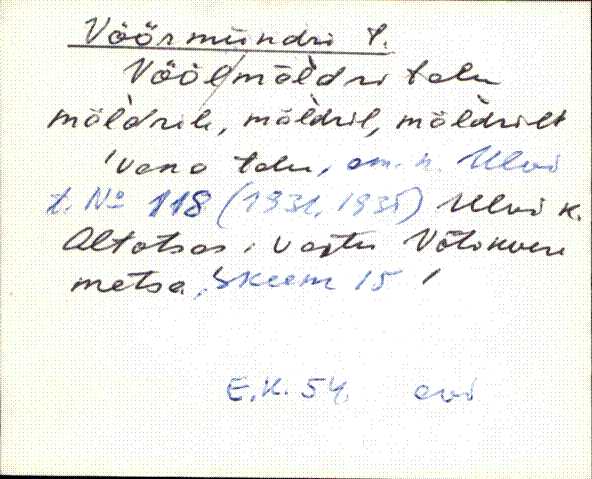 Vöörmündri t.
Vööl/möldri talu
möldrile, möldril, möldrilt
'vana talu, om. n. Ulvi
t. № 118 (1931, 1935) Ulvi k.
Altotsas, vastu Võtikvere
metsa, Skeem 15'
E.K. 54. avi